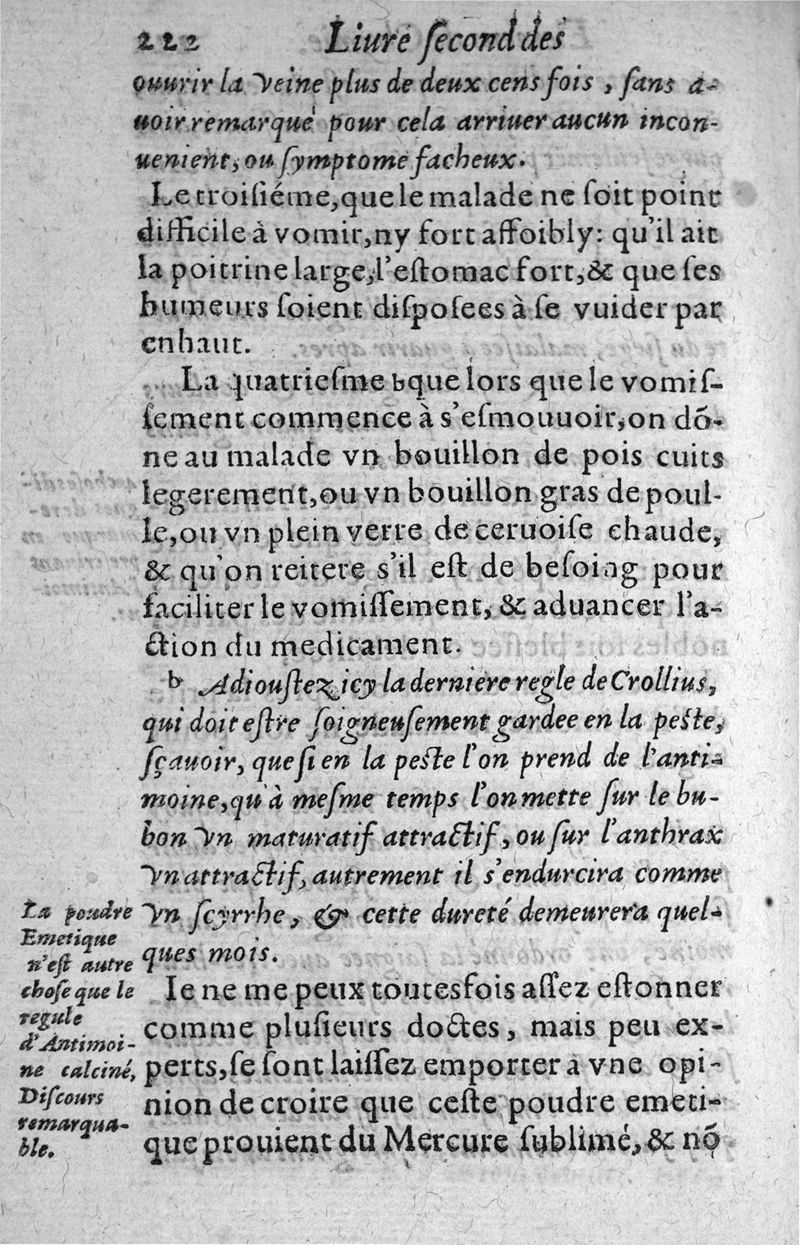 222 Liure ſecond des
ouurir la veine plus de deux cens fois, ſans a-
uoir remarqué pour cela arriuer aucun incon-
uenient, ou ſymptome facheux.
Le troiſiéme, que le malade ne ſoit point
difficile à vomir, ny fort affoibly: qu'il ait
la poitrine large, l'eſtomac fort, & que ſes
humeurs ſoient diſpoſees à ſe vuider par
enhaut.
La quatrieſme b que lors que le vomiſ-
ſement commence à s'eſmouuoir, on dõ-
ne au malade vn bouillon de pois cuits
legerement, ou vn bouillon gras de poul-
le, ou vn plein verre de ceruoiſe chaude,
& qu'on reitere s'il eſt de beſoing pour
faciliter le vomiſſement, & aduancer l'a-
ction du medicament.
b Adiouſtez icy la derniere regle de Crollius,
qui doit eſtre ſoigneuſement gardee en la peſte,
ſçauoir, que ſi en la peſte l'on prend de l'anti-
moine, qu'à meſme temps l'on mette ſur le bu-
bon vn maturatif attractif, ou ſur l'anthrax
vn attractif, autrement il s'endurcira comme
vn ſcyrrhe, & cette dureté demeurera quel-
ques mois.
Ie ne me peux toutesfois aſſez eſtonner
comme pluſieurs doctes, mais peu ex-
perts, ſe ſont laiſſez emporter a vne opi-
nion de croire que ceſte poudre emeti-
que prouient du Mercure ſublimé, & nõ
La poudre
Emetique
n'eſt autre
choſe que le
regule
d'Antimoi-
ne calciné,
Diſcours
remarqua-
ble.